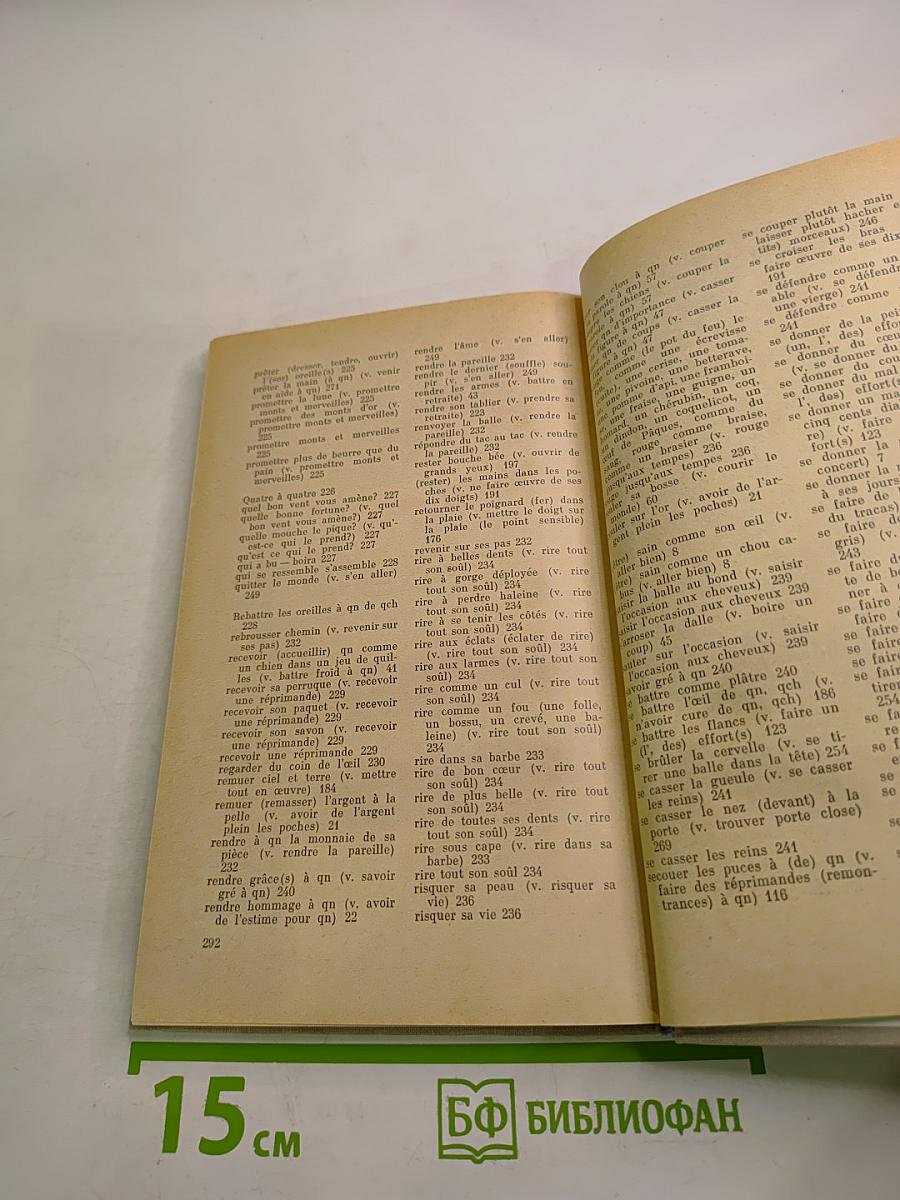 prêter (dresser, tendre, ouvrir)
l'(ses) oreille(s) 225
prêter la main (à qn) (v. venir
en aide à qn) 271
promettre la lune (v. promettre
monts et merveilles) 225
promettre des monts d'or (v.
promettre monts et merveilles)
225
promettre monts et merveilles
225
promettre plus de beurre que du
pain (v. promettre monts et
merveilles) 225
Quatre à quatre 226
quel bon vent vous amène? 227
quelle bonne fortune? (v. quel
bon vent vous amène?) 227
quelle mouche le pique? (v. qu'-
est-ce qui le prend?) 227
qu'est ce qui le prend? 227
qui a bu — boira 227
qui se ressemble s'assemble 228
quitter le monde (v. s'en aller)
249
Rebattre les oreilles à qn de qch
228
rebrousser chemin (v. revenir sur
ses pas) 232
recevoir (accueillir) qn comme
un chien dans un jeu de quil-
les (v. battre froid à qn) 41
recevoir sa perruque (v. recevoir
une réprimande) 229
recevoir son paquet (v. recevoir
une réprimande) 229
recevoir son savon (v. recevoir
une réprimande) 229
recevoir une réprimande 229
regarder du coin de l'œil 230
remuer ciel et terre (v. mettre
tout en œuvre) 184
remuer (remasser) l'argent à la
pelle (v. avoir de l'argent
plein les poches) 21
rendre à qn la monnaie de sa
pièce (v. rendre la pareille)
232
rendre grâce(s) à qn (v. savoir
gré à qn) 240
rendre hommage à qn (v. avoir
de l'estime pour qn) 22
292
rendre l'âme (v. s'en aller)
249
rendre la pareille 232
rendre le dernier (souffle) sou-
pir (v. s'en aller) 249
rendre les armes (v. battre en
retraite) 43
rendre son tablier (v. prendre sa
retraite) 223
renvoyer la balle (v. rendre la
pareille) 232
répondre du tac au tac (v. rendre
la pareille) 232
rester bouche bée (v. ouvrir de
grands yeux) 197
(rester) les mains dans les po-
ches (v. ne faire œuvre de ses
dix doigts) 191
retourner le poignard (fer) dans
la plaie (v. mettre le doigt sur
la plaie (le point sensible)
176
revenir sur ses pas 232
rire à belles dents (v. rire tout
son soûl) 234
rire à gorge déployée (v. rire
tout son soûl) 234
rire à perdre haleine (v. rire
tout son soûl) 234
rire à se tenir les côtés (v. rire
tout son soûl) 234
rire aux éclats (éclater de rire)
(v. rire tout son soûl) 234
rire aux larmes (v. rire tout son
soûl) 234
rire comme un cul (v. rire tout
son soûl) 234
rire comme un fou (une folle,
un bossu, un crevé, une ba-
leine) (v. rire tout son soûl)
234
rire dans sa barbe 233
rire de bon cœur (v. rire tout
son soûl) 234
rire de plus belle (v. rire tout
son soûl) 234
rire de toutes ses dents (v. rire
tout son soûl) 234
rire sous cape (v. rire dans sa
barbe) 233
rire tout son soûl 234
risquer sa peau (v. risquer sa
vie) 236
risquer sa vie 236
son clou à qn (v. couper
parole à qn) 57
les chiens (v. couper la
à qn) 57
qn d'importance (v. casser
figure à qn) 47
qn de coups (v. casser la
à qn) 47
comme (le pot du feu) le
comme une écrevisse
une cerise, une toma-
une pivoine, une betterave,
pomme d'api, une framboi-
une fraise, une guigne, un
homard, un chérubin, un coq,
dindon, un coquelicot, un
œuf de Pâques, comme du
sang, rouge comme braise,
comme un brasier (v. rouge
jusqu'aux tempes) 236
rouge jusqu'aux tempes 236
rouler sa bosse (v. courir le
monde) 60
rouler sur l'or (v. avoir de l'ar-
gent plein les poches) 21
(être) sain comme son œil (v.
aller bien) 8
(être) sain comme un chou ca-
bus (v. aller bien) 8
saisir la balle au bond (v. saisir
l'occasion aux cheveux) 239
saisir l'occasion aux cheveux 239
arroser la dalle (v. boire un
coup) 45
sauter sur l'occasion (v. saisir
l'occasion aux cheveux) 239
savoir gré à qn 240
se battre comme plâtre 240
se battre l'œil de qn, qch (v.
n'avoir cure de qn, qch) 186
se battre les flancs (v. faire un
(l', des) effort(s) 123
se brûler la cervelle (v. se ti-
rer une balle dans la tête) 254
se casser la gueule (v. se casser
les reins) 241
se casser le nez (devant) à la
porte (v. trouver porte close)
269
se casser les reins 241
secouer les puces à (de) qn (v.
faire des réprimandes (remon-
trances) à qn) 116
se couper plutôt la main
laisser plutôt hacher e
tits) morceaux) 246
se croiser les bras
faire œuvre de ses dix
191
se défendre comme un
able (v. se défend
une vierge) 241
se défendre comme
241
se donner de la pei
(un, l', des) effo
se donner du cœu
(v. se donner du
se donner du cou
se donner du mal
l', des) effort(s
se donner un ma
cinq cents dia
re) (v. faire
fort(s) 123
se donner la
concert) 7
se donner la
à ses jours
se faire de
du tracas)
se faire de
gris) (v.
243
se faire d
te de b
ner à
se faire
faire
se faire
se faire
se faire
se fai
tirer
254
se fa
se f
se
se
15 см
БФ БИБЛИОФАН